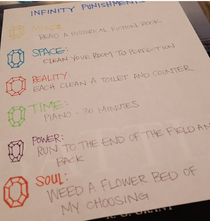 INFINITY PUNISHMENTS
READ A HISTORICAL FICTION BOOK
SPACE:
CLEAN YOUR ROOM TO PERFECTION
REALITY
EACH CLEAN A TOILET AND COUNTER
TIME:
PIANO - 30 MINUTES
POWER:
RUN TO THE END OF THE FIELD AND
BACK
SOUL:
WEED A FLOWER BED OF
MY CHOOSING